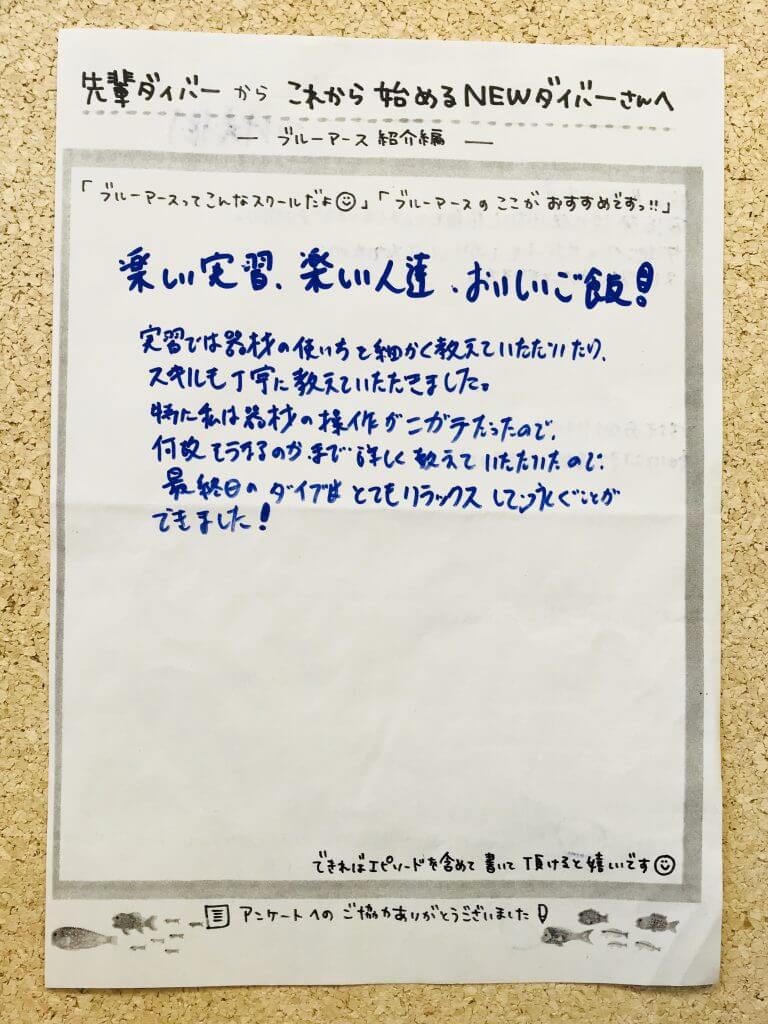 先輩ダイバーから これから始めるNEWダイバーさんへ
― ブルーアース紹介編 ―
「ブルーアースってこんなスクールだよ☺」「ブルーアースのここがおすすめですっ!!」
楽しい実習、楽しい人達、おいしいご飯!
実習では器材の使い方と細かく教えていただいたり、
スキルも丁寧に教えていただきました。
特に私は器材の操作がニガテだったので、
何故そうするのか、まで詳しく教えていただいたので、
最終日のダイブはとてもリラックスして泳ぐことが
できました!
できればエピソードを含めて書いて頂けると嬉しいです☺
アンケートへのご協力ありがとうございました